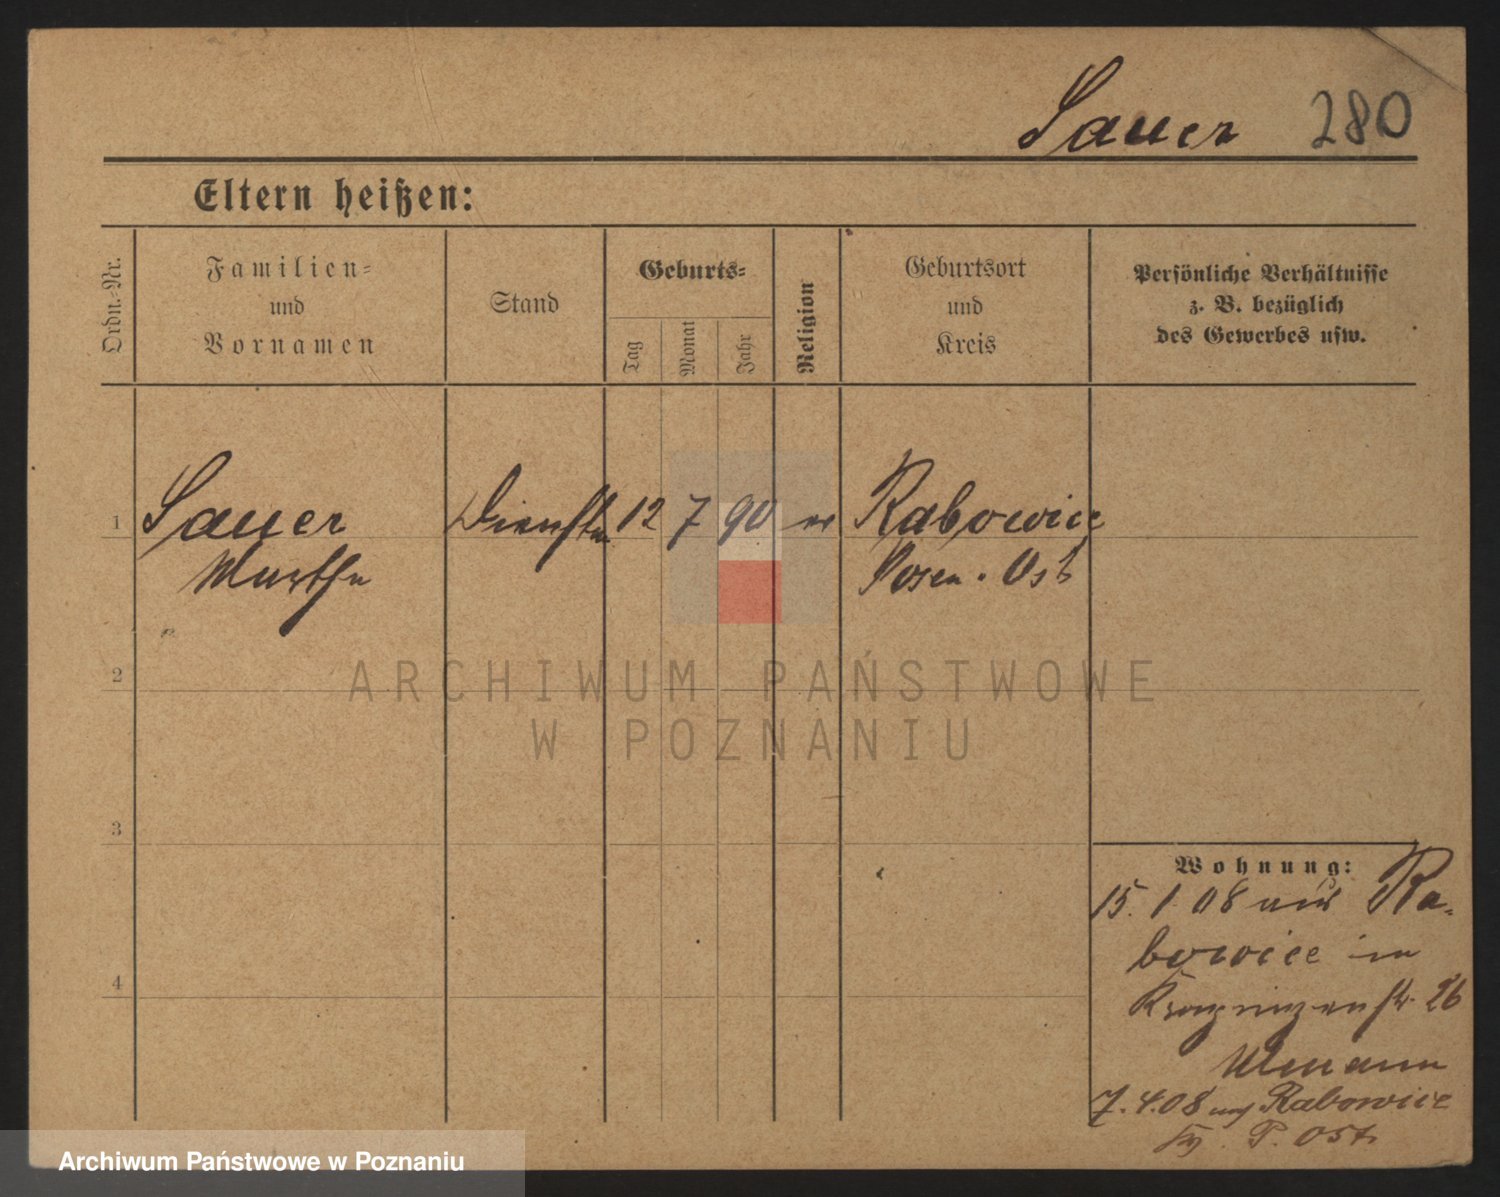 Sauer 280
Eltern heißen:
Ordn.-Nr.
Familien-
und
Vornamen
Stand
Geburts-
Tag
Monat
Jahr
Religion
Geburtsort
und
Kreis
Persönliche Verhältnisse
z. B. bezüglich
des Gewerbes usw.
1 Sauer 12 7 90 ev Rabowice
Martha Posen. Ost
2
ARCHIWUM PAŃSTWOWE
W POZNANIU
3
Wohnung:
15. 1 08 aus Ra-
bowice in
Kronprinzenstr. 26
7.4.08 Rabowice
P. Ost.
4
Archiwum Państwowe w Poznaniu